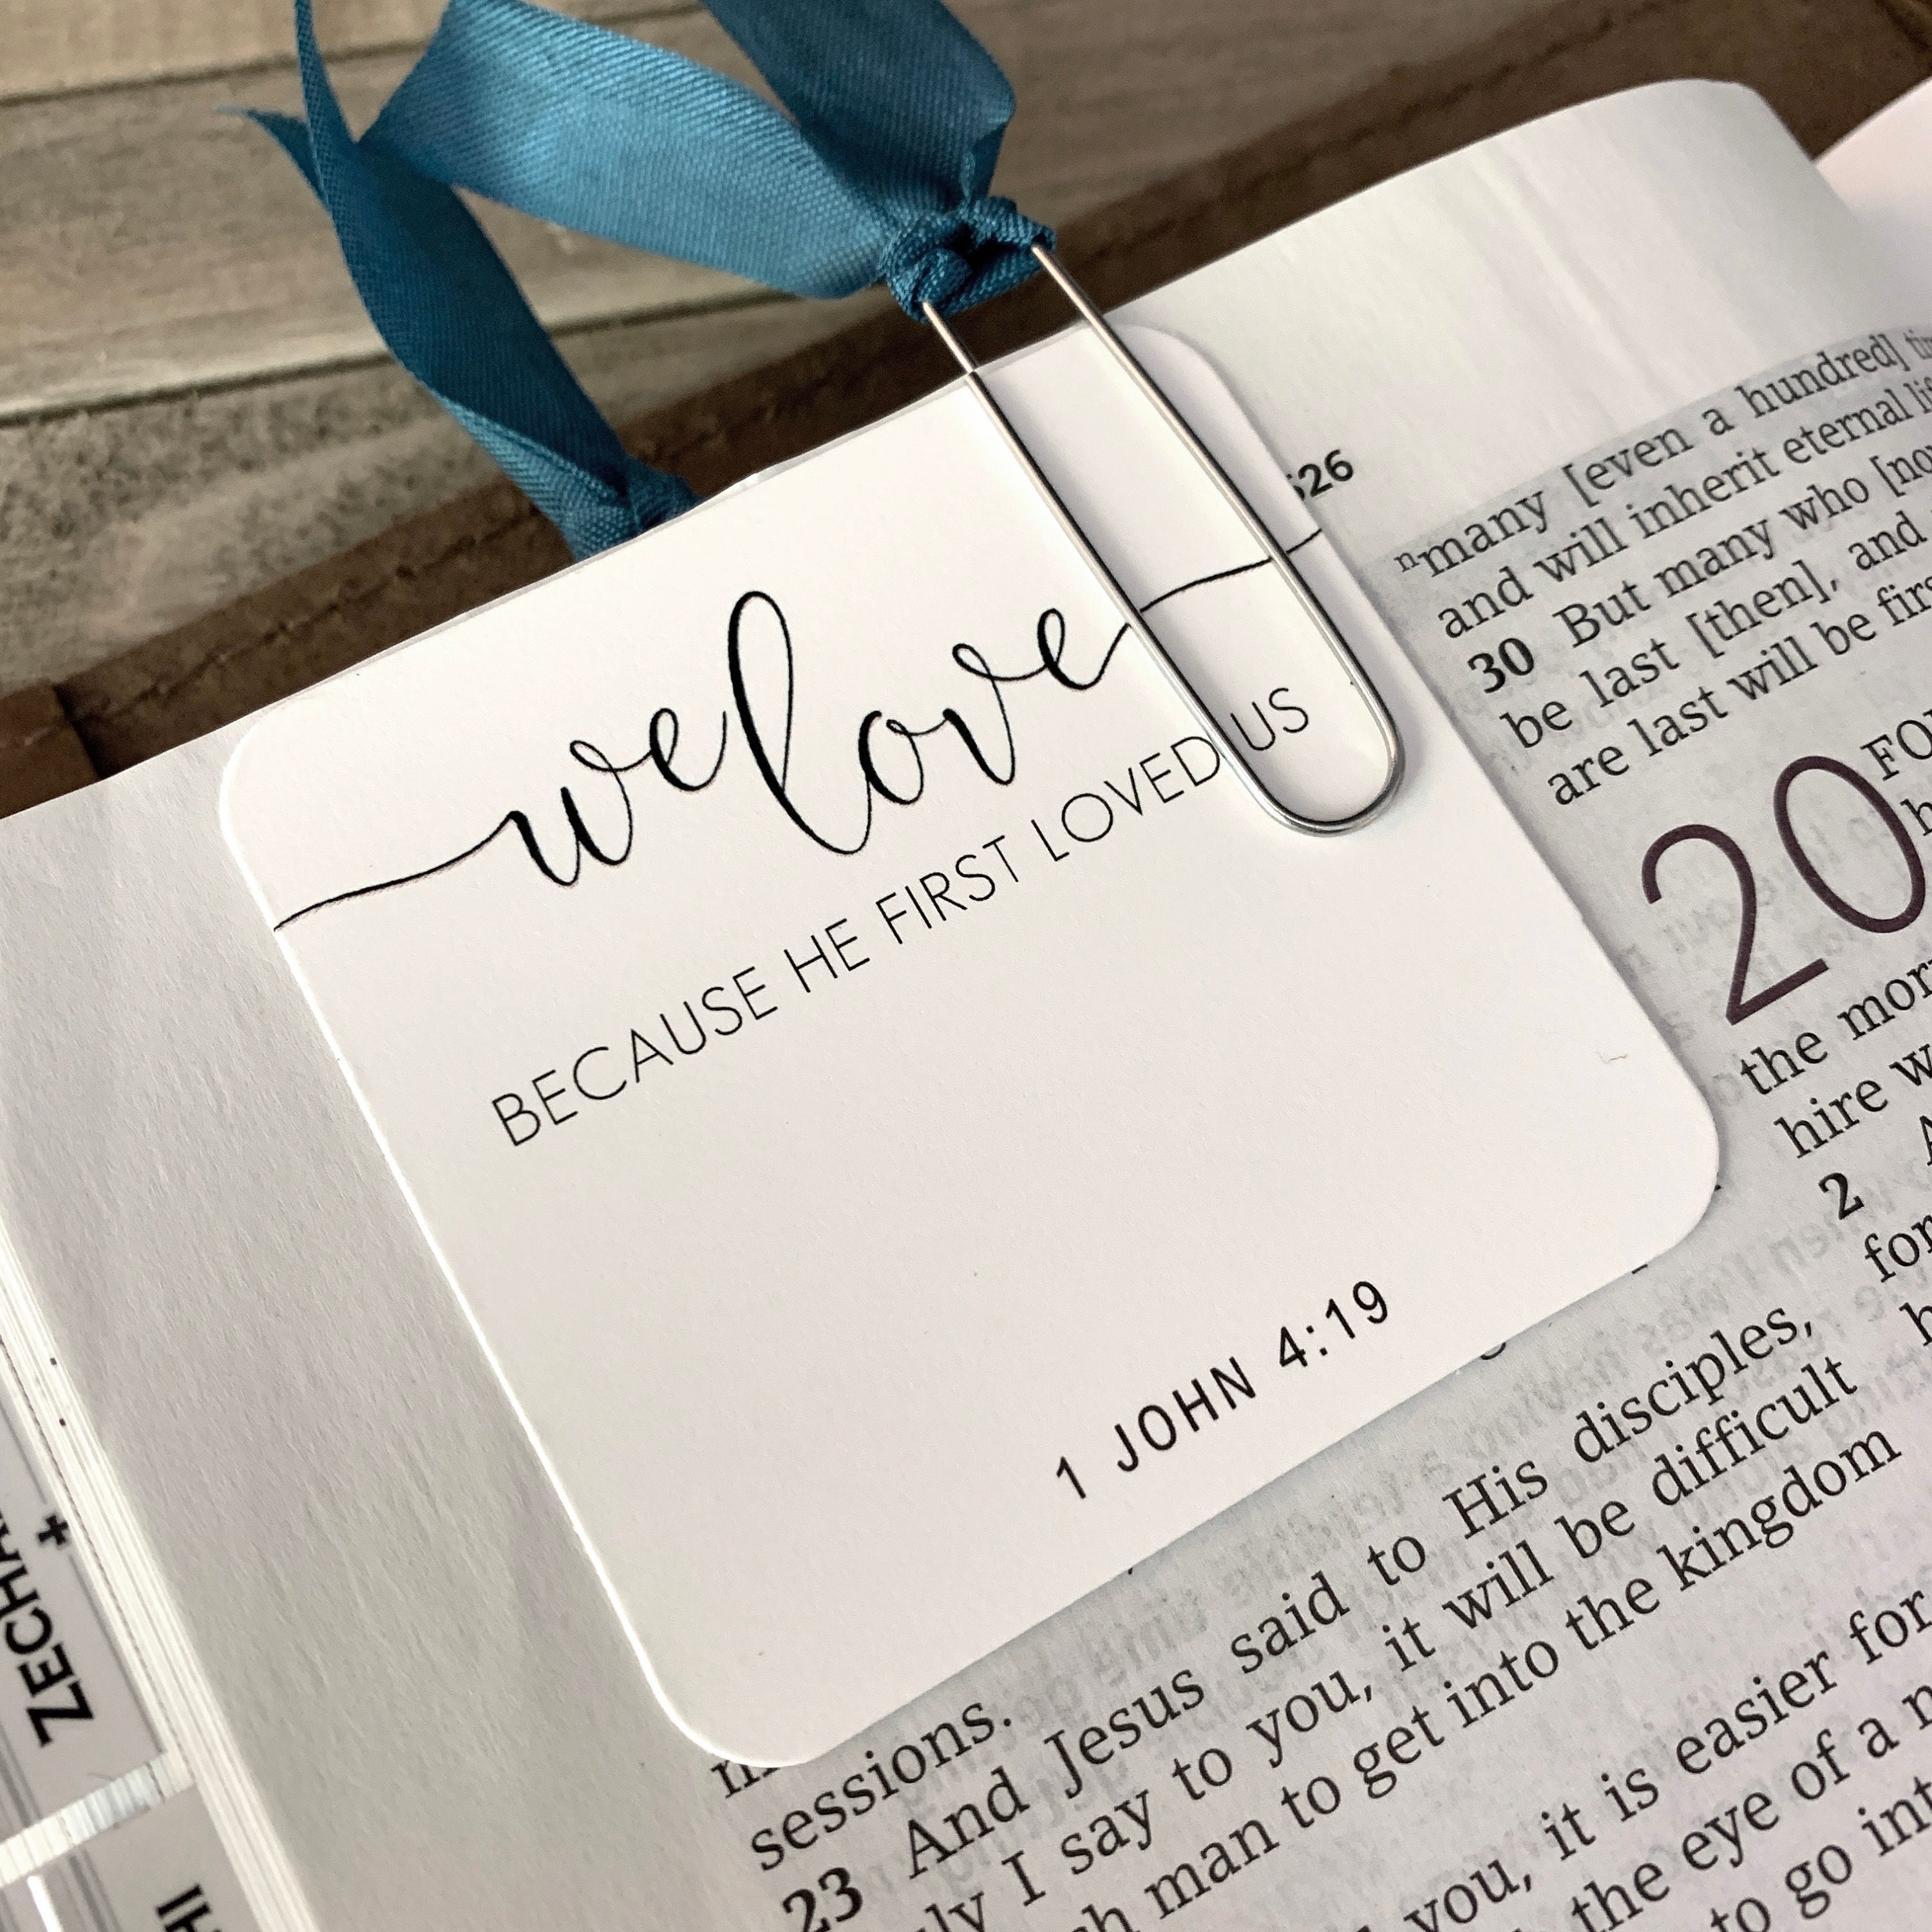 we love
BECAUSE HE FIRST LOVED US
1 JOHN 4:19
many [even a hundred]
and will inherit eternal
30 But many who
be last [then], and
are last will be
20
the
hire
2
sessions.
23 And Jesus said to His disciples,
I say to you, it will be difficult
man to get into the kingdom
you, it is easier for
the eye of a
to go